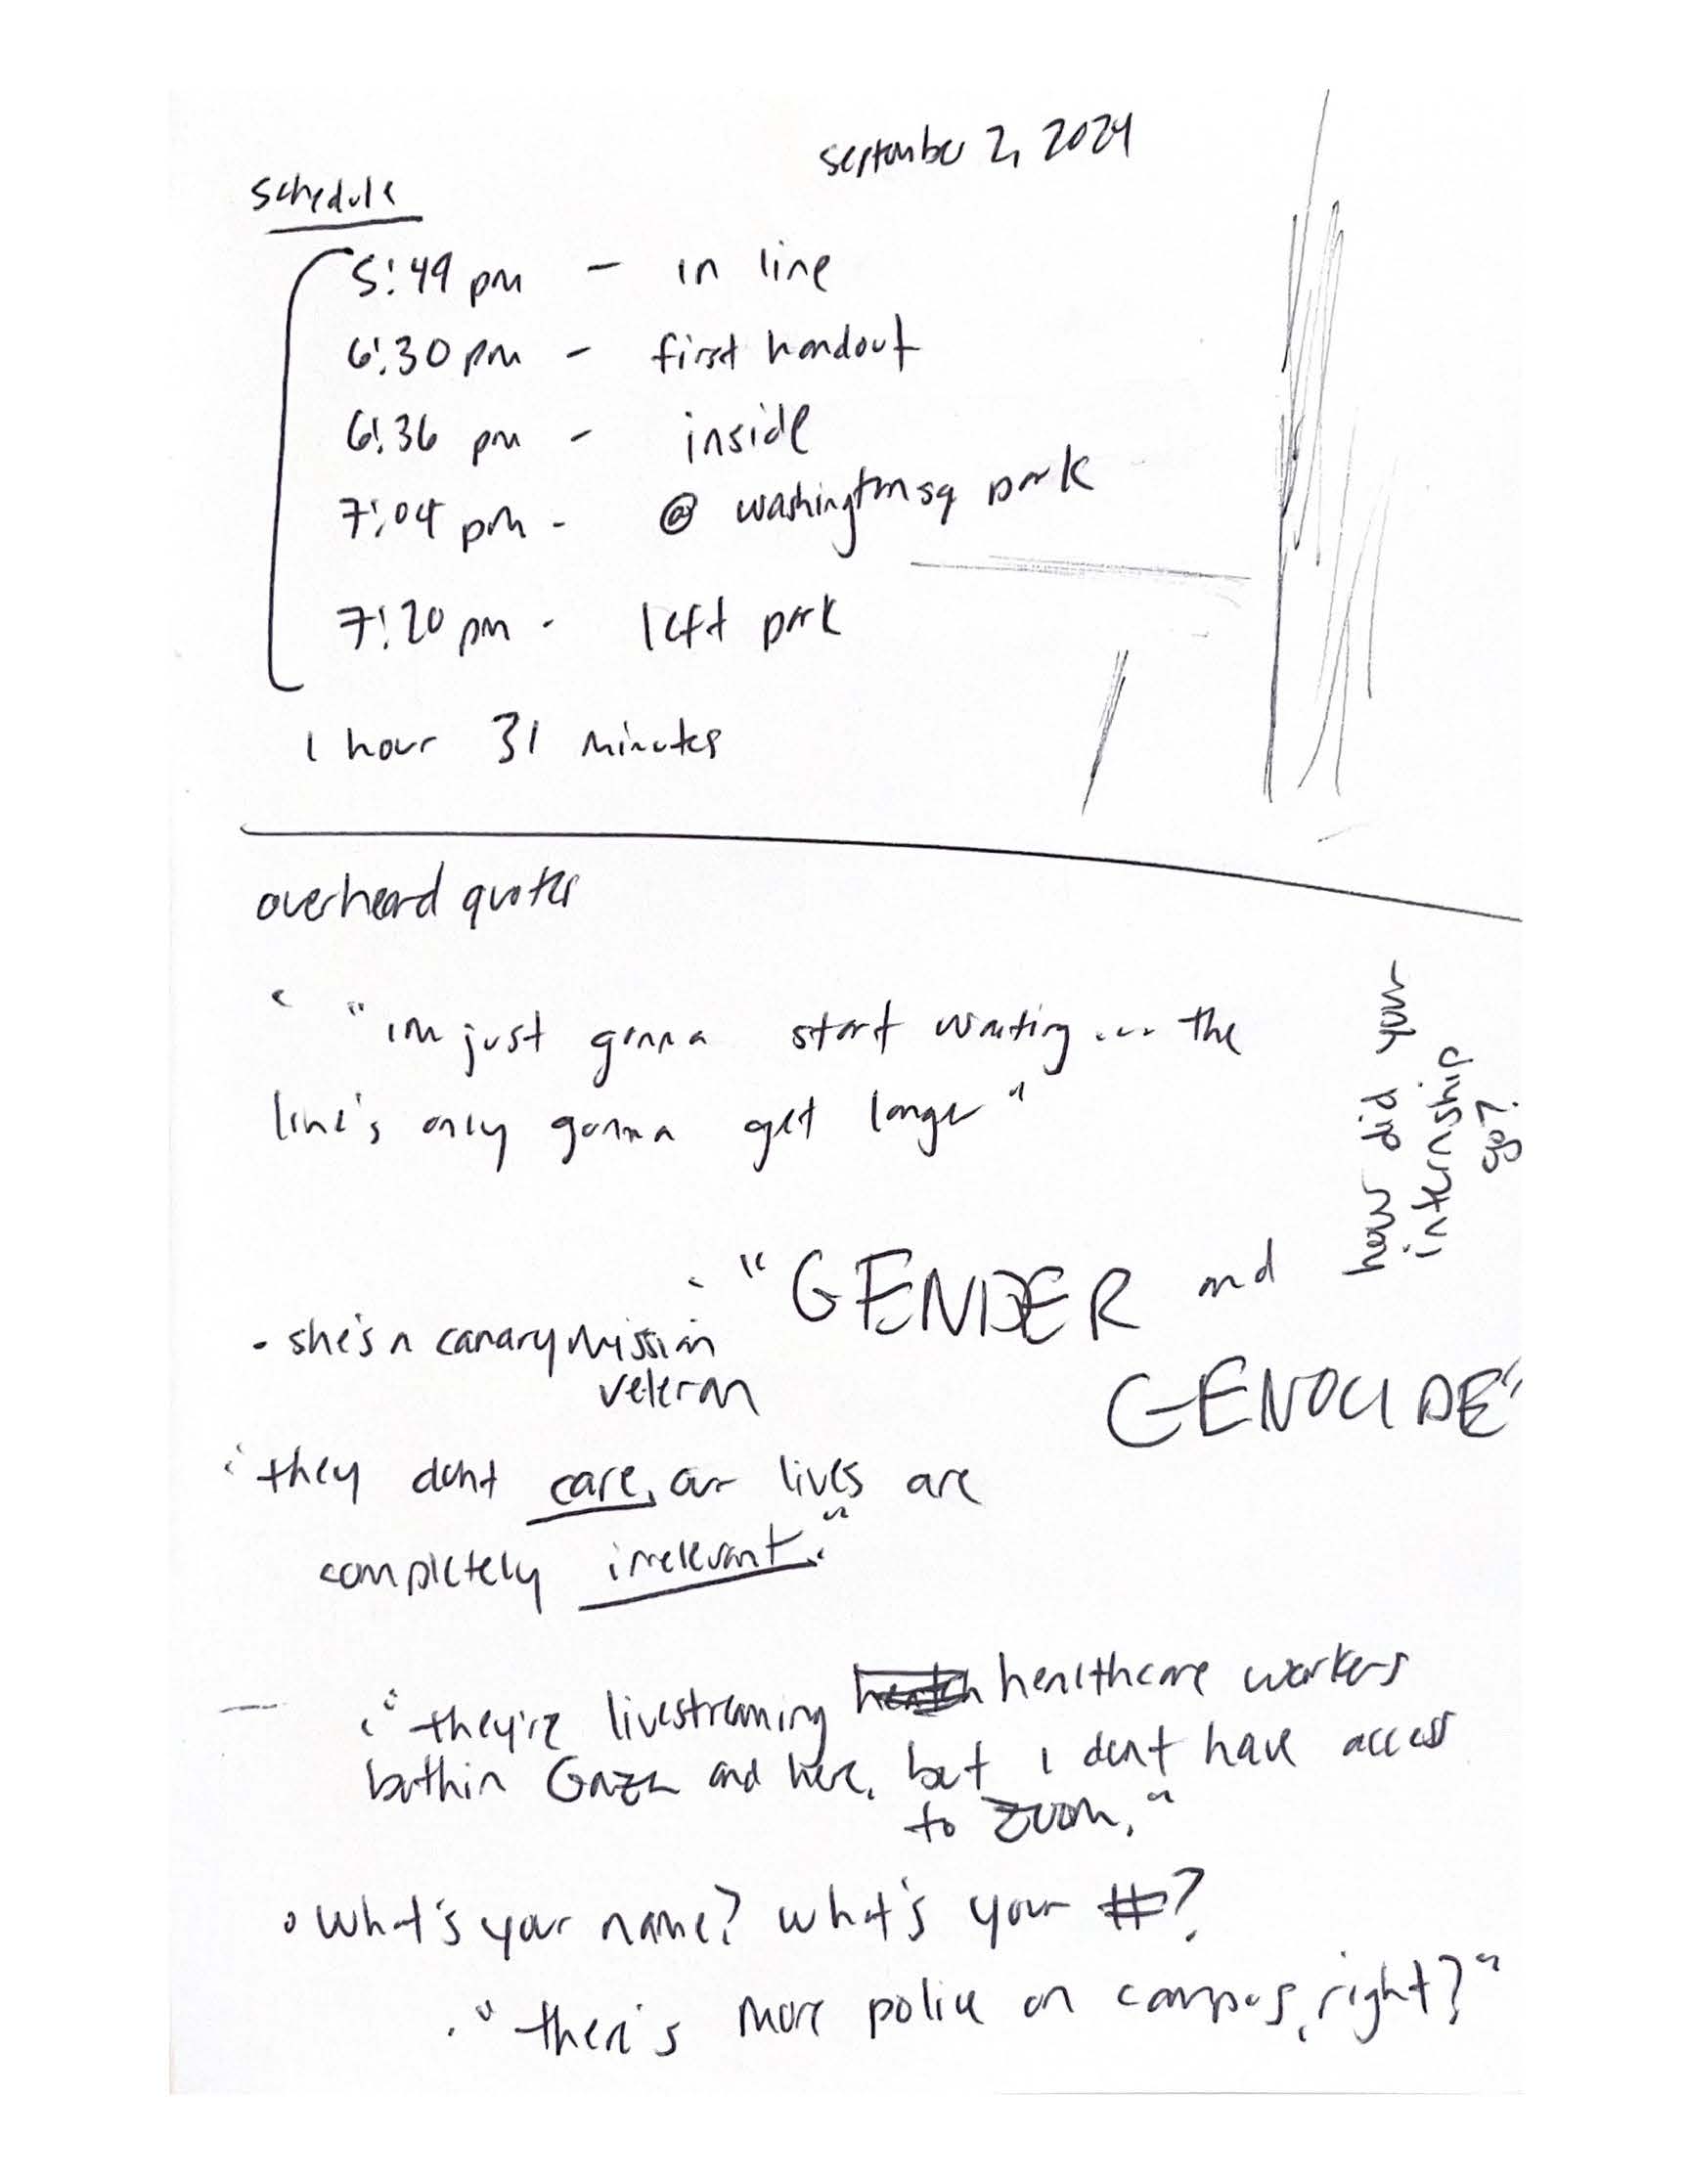 september 2, 2024
schedule
5:49 pm - in line
6:30 pm - first handout
6:36 pm - inside
7:04 pm - @ washington sq park
7:20 pm - left park
1 hour 31 minutes
overheard quotes
"im just gonna start waiting... the
line's only gonna get longer"
how did your
internship
go?
"GENDER and
GENOCIDE"
- she's a canary mission
veteran
"they dont care, our lives are
completely irrelevant."
"they're livestreaming healthcare workers
both in Gaza and here, but i dont have access
to zoom."
what's your name? what's your #?
"there's more police on campus, right?"